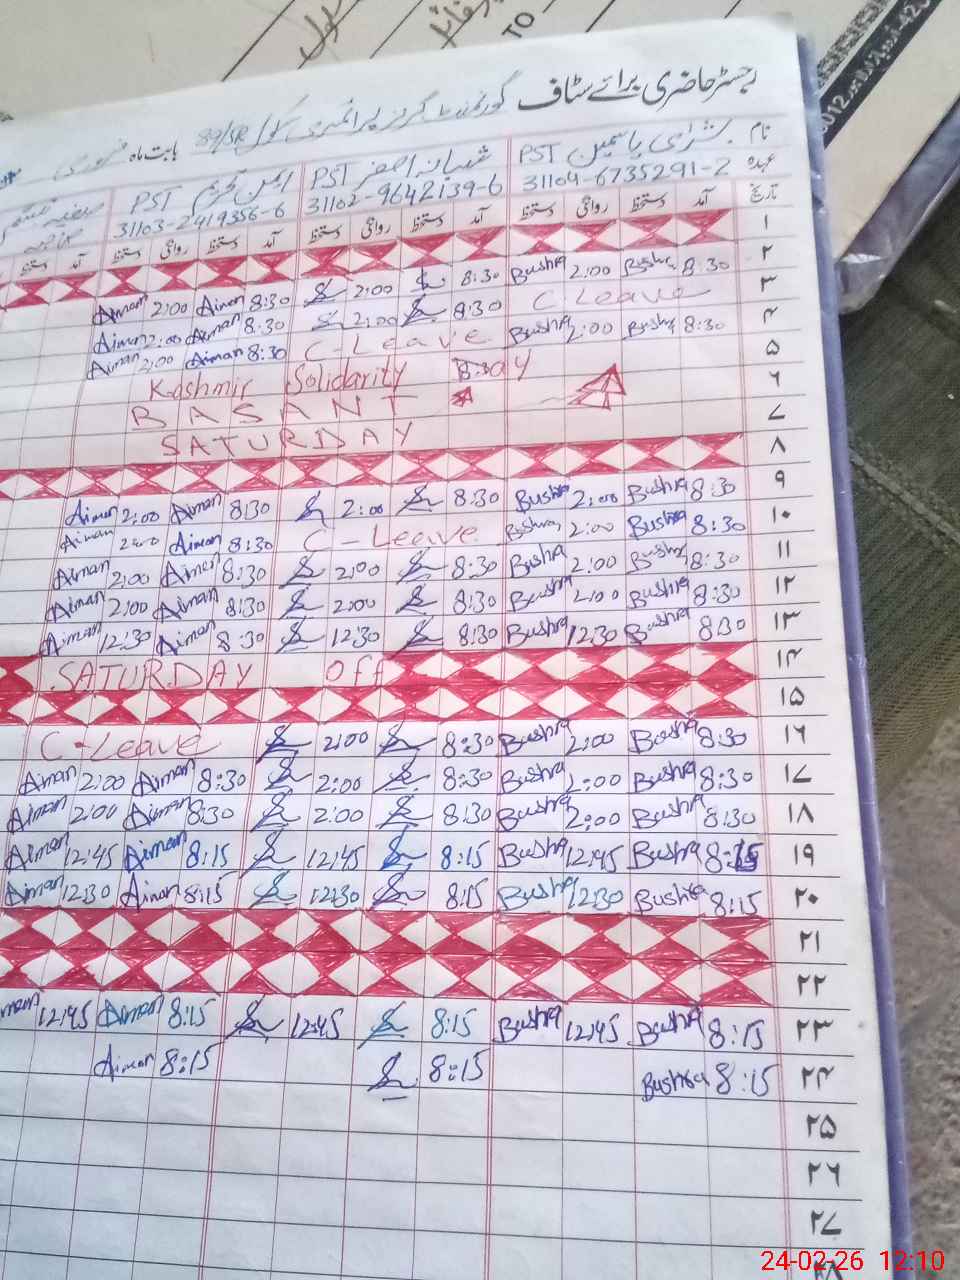 TO
رجسٹر حاضری برائے سٹاف گورنمنٹ گرلز پرائمری سکول 89/SR بابت ماہ فروری
نام بشریٰ یاسمین PST شبانہ اصغر PST ایمن تحریم PST
عہدہ 31104-6735291-2 31102-9642139-6 31103-2419356-6
تاریخ آمد دستخط روانگی دستخط آمد دستخط روانگی دستخط آمد دستخط روانگی دستخط آمد دستخط
۱
۲ 8:30 Bushra 2:00 Bushra 8:30 2:00 8:30 Aiman 2:00 Aiman
۳ C-Leave 8:30 2:00 8:30 Aiman 2:00 Aiman
۴ 8:30 Bushra 2:00 Bushra C-Leave 8:30 Aiman 2:00 Aiman
۵ Kashmir Solidarity Day
۶ BASANT
۷ SATURDAY
۸
۹ 8:30 Bushra 2:00 Bushra 8:30 2:00 8:30 Aiman 2:00 Aiman
۱۰ 8:30 Bushra 2:00 Bushra C-Leave 8:30 Aiman 2:00 Aiman
۱۱ 8:30 Bushra 2:00 Bushra 8:30 2:00 8:30 Aiman 2:00 Aiman
۱۲ 8:30 Bushra 2:00 Bushra 8:30 2:00 8:30 Aiman 2:00 Aiman
۱۳ 8:30 Bushra 12:30 Bushra 8:30 12:30 8:30 Aiman 12:30 Aiman
۱۴ SATURDAY Off
۱۵
۱۶ 8:30 Bushra 2:00 Bushra 8:30 2:00 C-Leave
۱۷ 8:30 Bushra 2:00 Bushra 8:30 2:00 8:30 Aiman 2:00 Aiman
۱۸ 8:30 Bushra 2:00 Bushra 8:30 2:00 8:30 Aiman 2:00 Aiman
۱۹ 8:15 Bushra 12:45 Bushra 8:15 12:45 8:15 Aiman 12:45 Aiman
۲۰ 8:15 Bushra 12:30 Bushra 8:15 12:30 8:15 Aiman 12:30 Aiman
۲۱
۲۲
۲۳ 8:15 Bushra 12:45 Bushra 8:15 12:45 8:15 Aiman 12:45 Aiman
۲۴ 8:15 Bushra 8:15 8:15 Aiman
۲۵
۲۶
۲۷
۲۸
24-02-26 12:10